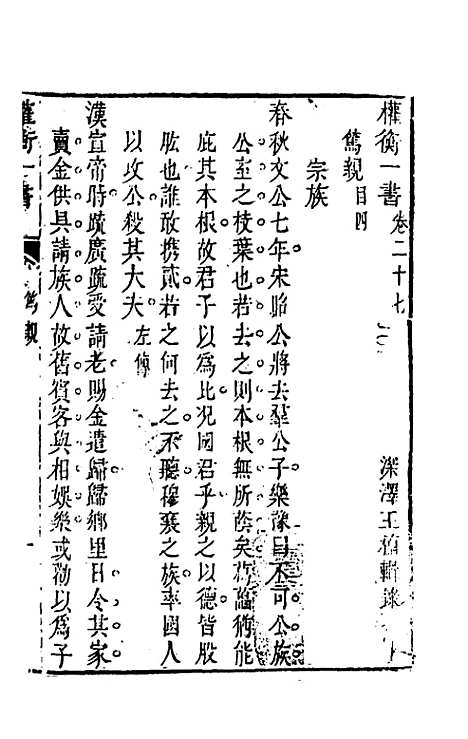 權衡一書 卷二十七 深澤王植輯錄
篤親 目四
宗族
春秋文公七年宋昭公將去羣公子樂豫曰不可公族
公室之枝葉也若去之則本根無所蔭矣葛藟猶能
庇其本根故君子以爲比況國君乎親之以德皆股
肱也誰敢携貳若之何去之不聽穆襄之族率國人
以攻公殺其大夫 左傳
漢宣帝時疏廣疏受請老賜金遣歸歸鄉里日令其家
賣金供具請族人故舊賓客與相娛樂或勸以爲子
權衡一書 篤親